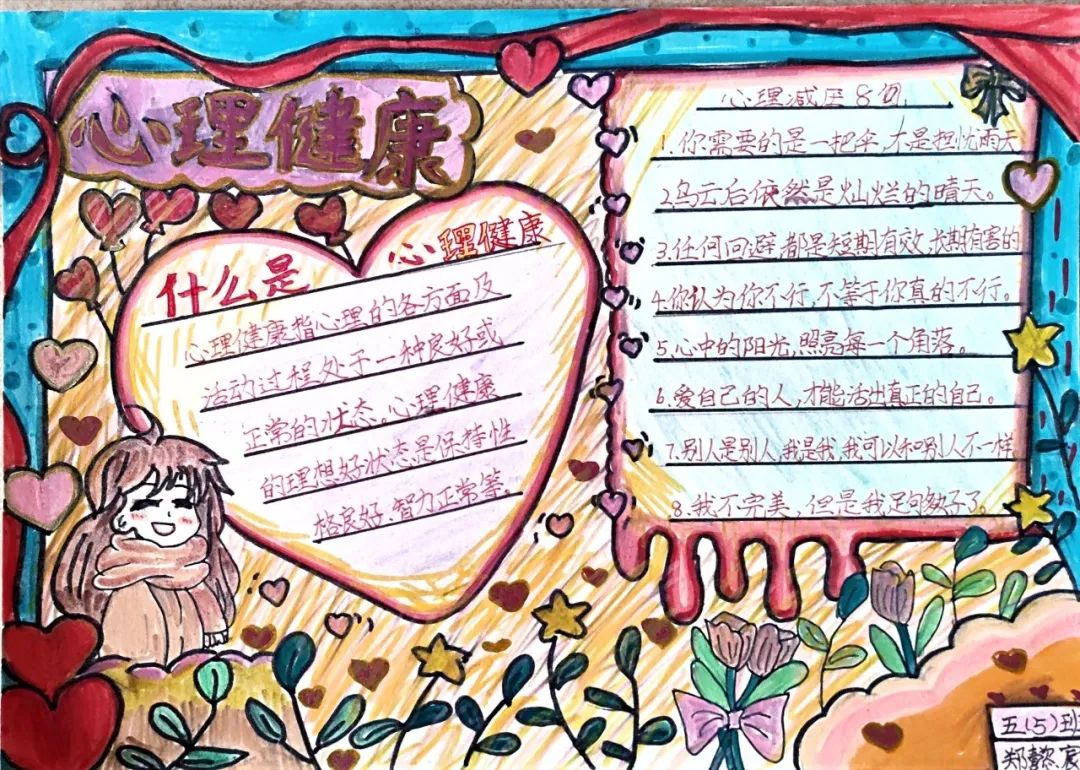 心理健康
什么是 心理健康
心理健康指心理的各方面及
活动过程处于一种良好或
正常的状态。心理健康
的理想好状态是保持性
格良好、智力正常等。
心理减压8句
1.你需要的是一把伞,不是担忧雨天
2.乌云后依然是灿烂的晴天。
3.任何回避都是短期有效,长期有害的
4.你认为你不行,不等于你真的不行。
5.心中的阳光,照亮每一个角落。
6.爱自己的人,才能活出真正的自己。
7.别人是别人,我是我,我可以和别人不一样
8.我不完美,但是我足够好了。
五(5)班
郑懿宸